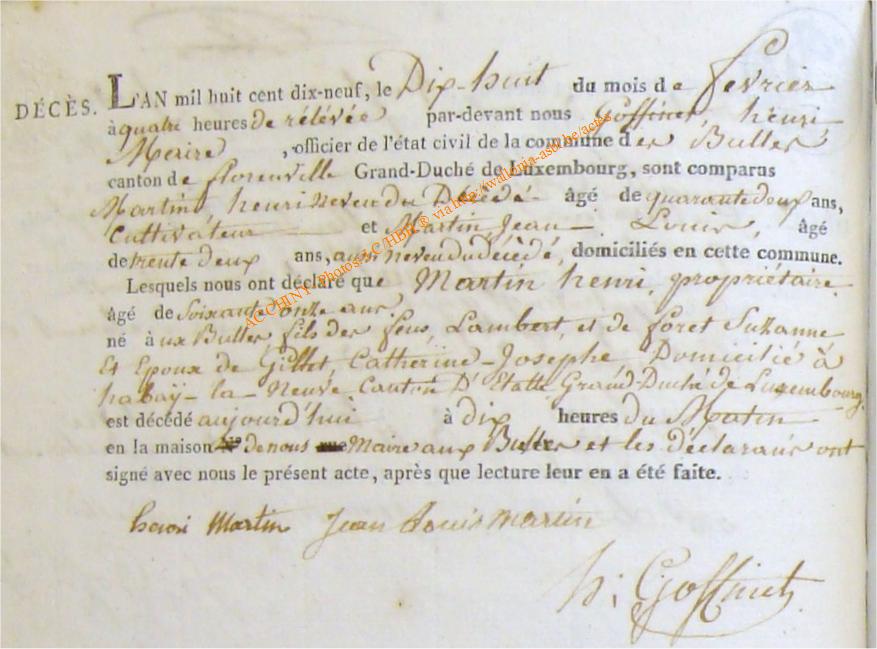 DÉCÈS. L'AN mil huit cent dix-neuf, le Dix-huit du mois de fevrier
à quatre heures de rélévée par-devant nous Goffinet, henri
Maire, officier de l'état civil de la commune des Bulles
canton de florenville Grand-Duché de Luxembourg, sont comparus
Martin, henri neveu du Décédé âgé de quarante deux ans,
Cultivateur et Martin, Jean Louis, âgé
de trente deux ans, aussi neveu du décédé, domiciliés en cette commune.
Lesquels nous ont déclaré que Martin henri, propriétaire
âgé de Soixante onze ans.
né à ux Bulles, fils des feus, Lambert, et de foret Suzanne
Et Epoux de Gillet, Catherine-Josephe Domicilié à
habaÿ-la-Neuve Canton D'Etalle Grand-Duché de Luxembourg,
est décédé aujourd'hui à dix heures du Matin
en la maison de nous Maire aux Bulles et les déclarans ont
signé avec nous le présent acte, après que lecture leur en a été faite.
henri Martin Jean Louis martin
h; Goffinet
ACCHINY photos AC/HBH ® via http://wallonia-asbl.be/actes